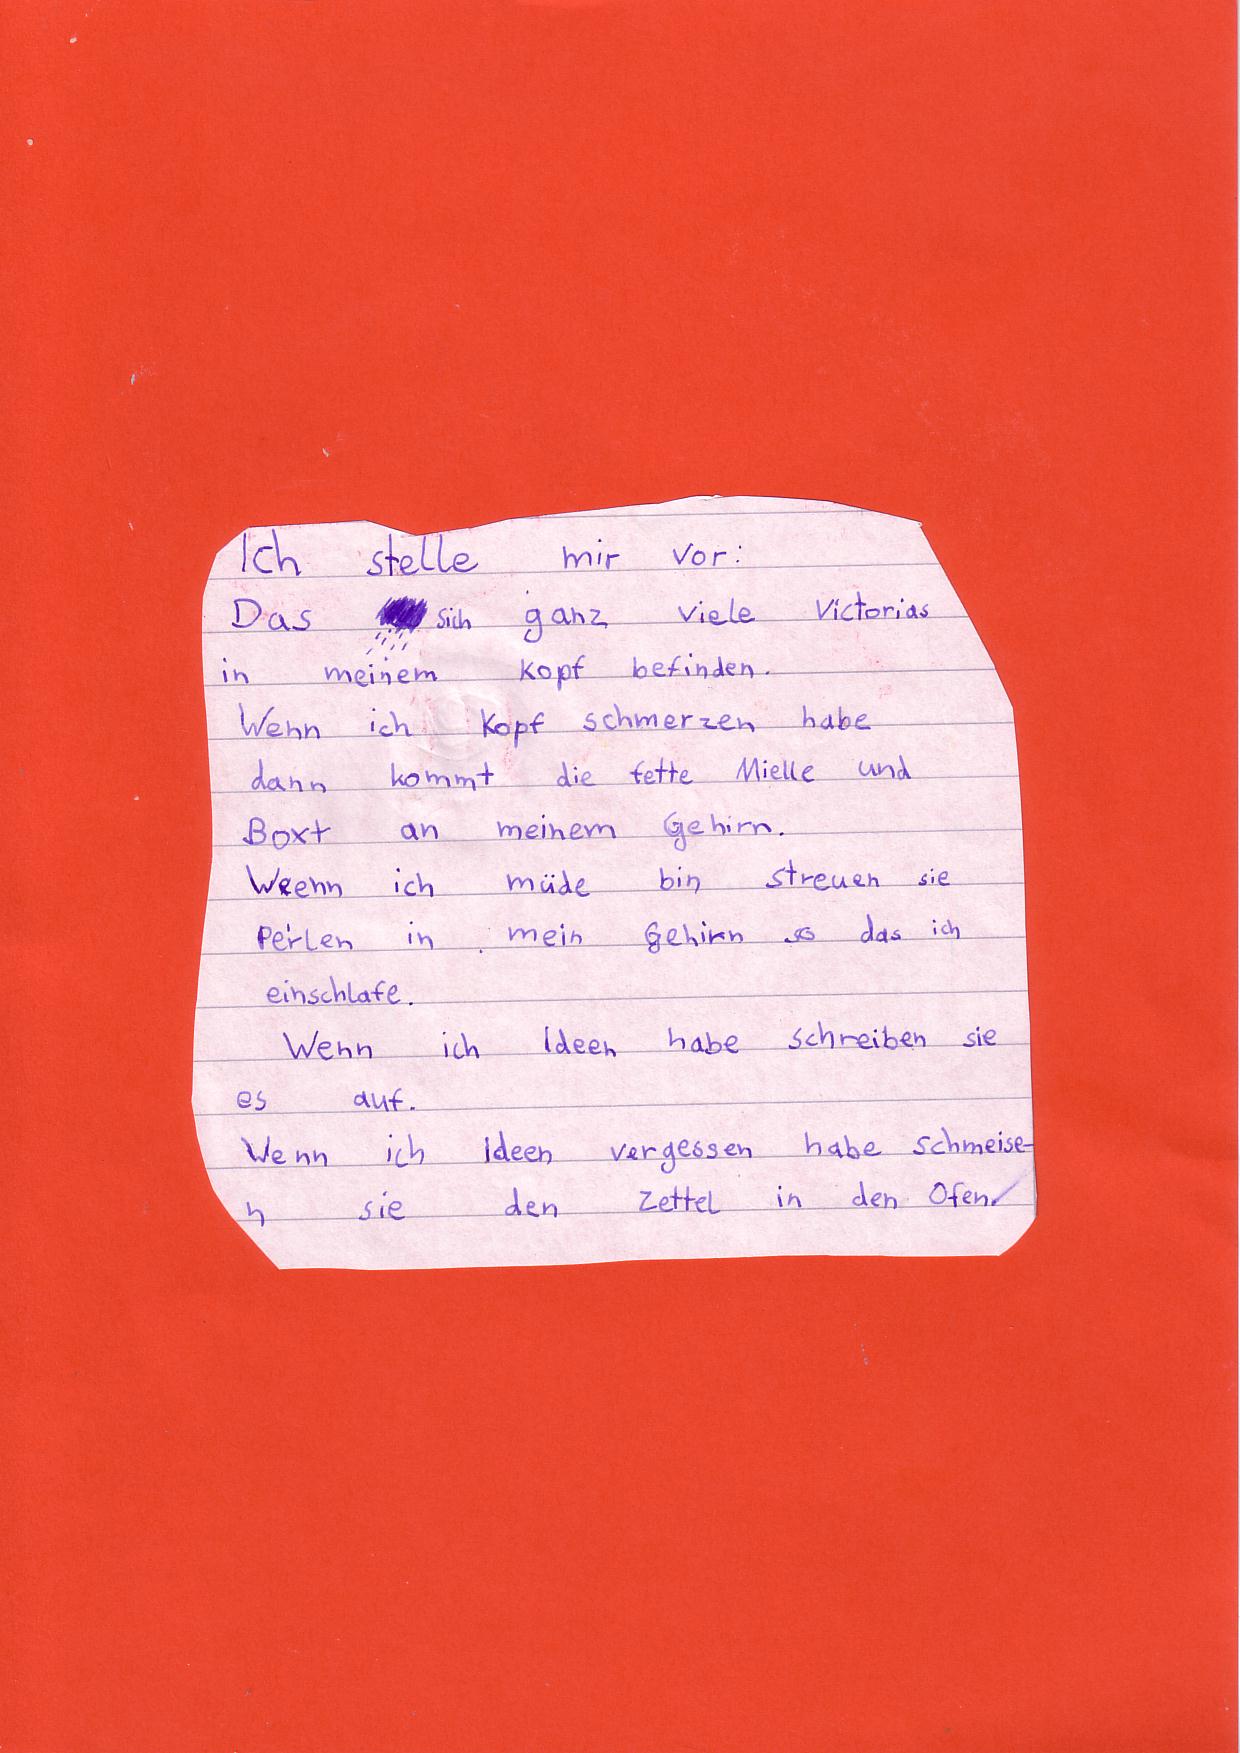 Ich stelle mir vor:
Das sich ganz viele Victorias
in meinem Kopf befinden.
Wenn ich Kopf schmerzen habe
dann kommt die fette Mielle und
Boxt an meinem Gehirn.
Weenn ich müde bin streuen sie
Perlen in mein Gehirn so das ich
einschlafe.
Wenn ich Ideen habe schreiben sie
es auf.
Wenn ich Ideen vergessen habe schmeise-
n sie den Zettel in den Ofen.